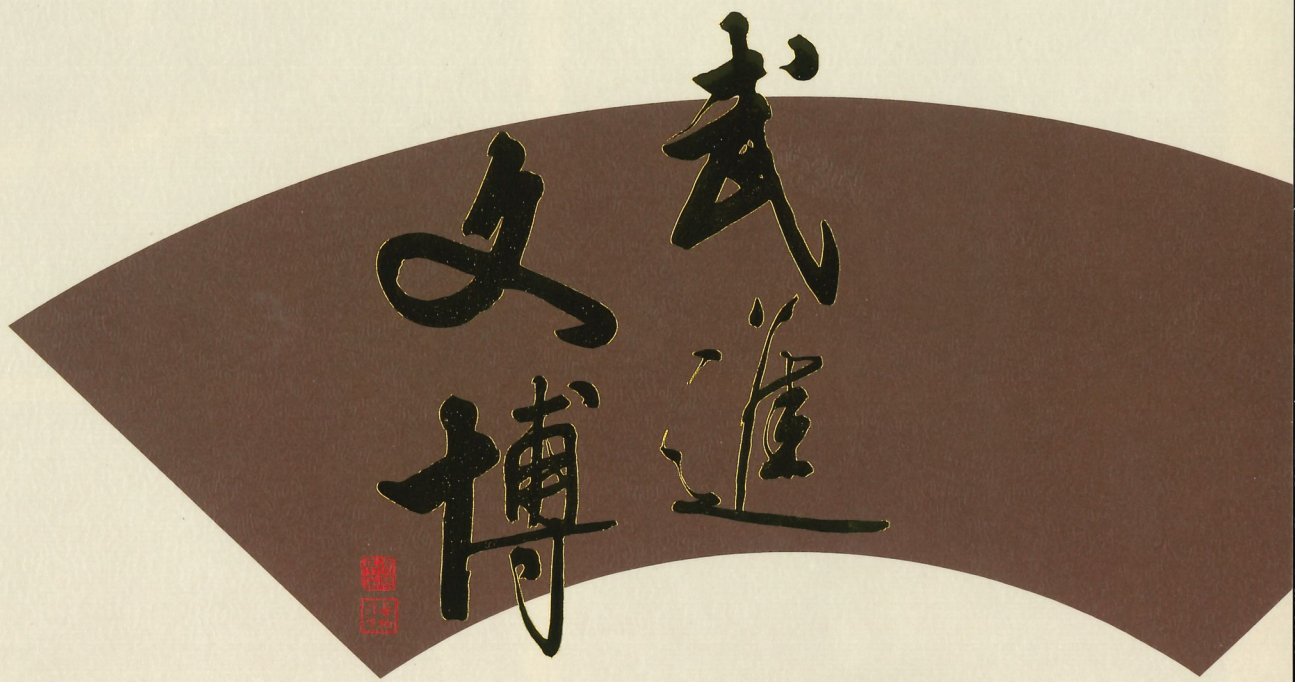 武進
文博